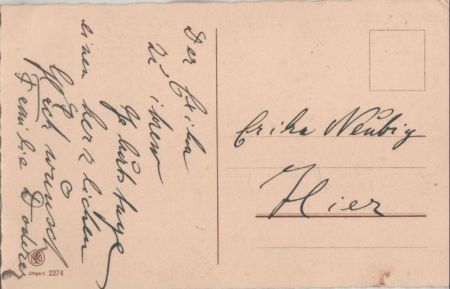 Der Erika
zu ihrem
Geburtstage
einen herzlichen
Glückwunsch
Familie Doderer
Erika Neubig
Hier
Import 2274